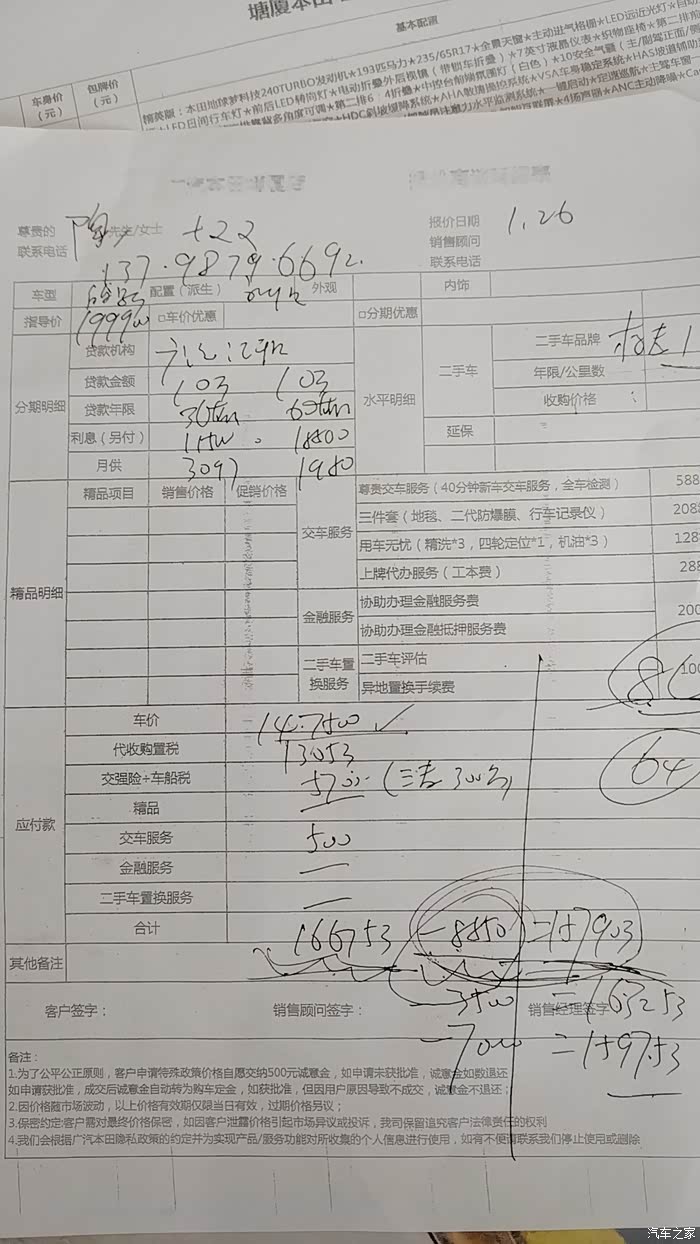 塘厦本田
基本配置
车身价
(元)
包牌价
(元)
精英版：本田地球梦科技240TURBO发动机★193匹马力★235/65R17★全景天窗★主动进气格栅★LED远近光灯★自动
LED日间行车灯★前后LED转向灯★电动折叠外后视镜（带锁车折叠）★7英寸液晶仪表★织物座椅★第二排前
尊贵的 先生/女士 +22 报价日期 1.26
销售顾问
联系电话 137.9879.6692. 联系电话
车型 配置（派生） 外观 内饰
指导价 199900 □车价优惠 □分期优惠
分期明细
贷款机构
贷款金额 103 103
贷款年限 36 60
利息（另付） 18800
月供 3097 1980
水平明细
二手车
二手车品牌
年限/公里数
收购价格
延保
精品明细
精品项目 销售价格 促销价格
交车服务
尊贵交车服务（40分钟新车交车服务，全车检测） 588
三件套（地毯、二代防爆膜、行车记录仪） 208
用车无忧（精洗*3，四轮定位*1，机油*3） 128
上牌代办服务（工本费） 288
金融服务
协助办理金融服务费 200
协助办理金融抵押服务费
二手车置换服务
二手车评估 100
异地置换手续费
86
64
应付款
车价 147500 ✓
代收购置税 13053
交强险+车船税 5700 (三者300万)
精品 —
交车服务 500
金融服务 —
二手车置换服务 —
合计 166753 -8850 =157903
其他备注
客户签字： 销售顾问签字： 销售经理签字
-3500 =163253
-7000 =159753
备注：
1.为了公平公正原则，客户申请特殊政策价格自愿交纳500元诚意金，如申请未获批准，诚意金如数退还
如申请获批准，成交后诚意金自动转为购车定金，如获批准，但因用户原因导致不成交，诚意金不退还；
2.因价格随市场波动，以上价格有效期仅限当日有效，过期价格另议；
3.保密约定:客户需对最终价格保密，如因客户泄露价格引起市场异议或投诉，我司保留追究客户法律责任的权利
4.我们会根据广汽本田隐私政策的约定并为实现产品/服务功能对所收集的个人信息进行使用，如有不便请联系我们停止使用或删除
汽车之家